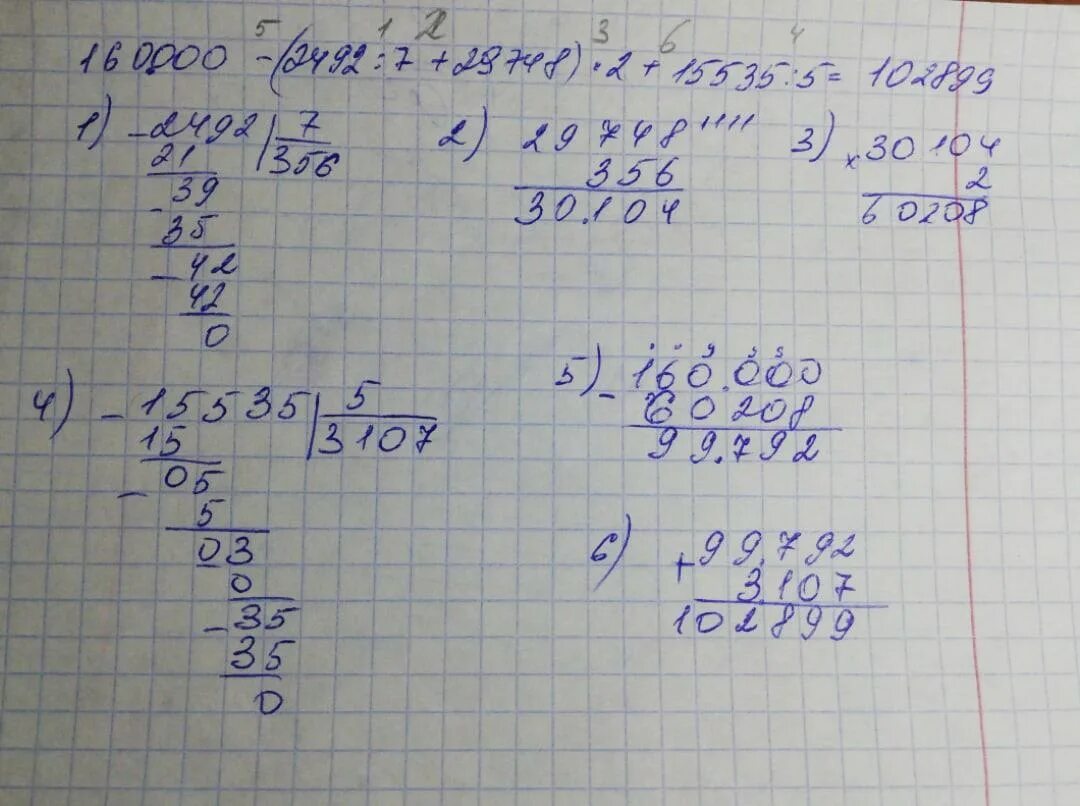 5 1 2 3 6 4
160000 - (2492 : 7 + 29748) · 2 + 15535 : 5 = 102899
1) - 2492 | 7
21 356
- 39
35
- 42
42
0
2) 29748
356
30.104
3) × 30104
2
60208
4) - 15535 | 5
15 3107
- 05
5
03
0
- 35
35
0
5) - 160.000
60208
99.792
6) + 99.792
3.107
102899